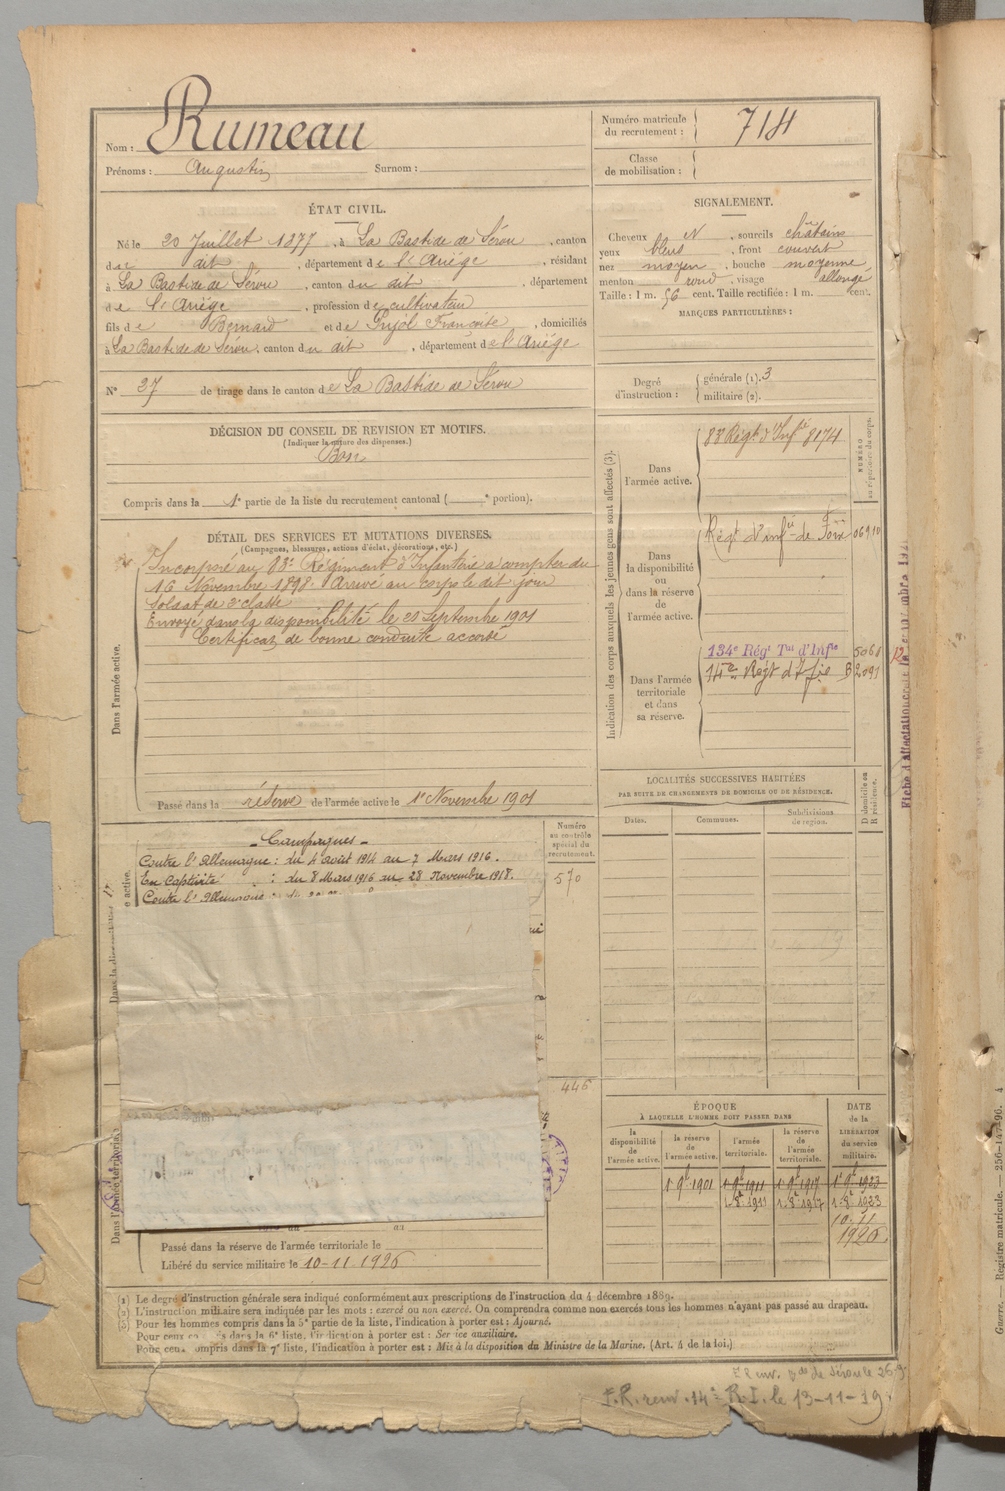 Nom : Rumeau
Prénoms : Augustin Surnom :
Numéro matricule du recrutement : 714
Classe de mobilisation :
ÉTAT CIVIL.
Né le 20 Juillet 1877, à La Bastide de Sérou, canton
du dit, département de l'Ariége, résidant
à La Bastide de Sérou, canton du dit, département
de l'Ariége, profession de cultivateur
fils de Bernard et de Pujol Françoise, domiciliés
à La Bastide de Sérou, canton du dit, département de l'Ariége
N° 37 de tirage dans le canton de La Bastide de Sérou
SIGNALEMENT.
Cheveux N, sourcils châtains
yeux bleus, front couvert
nez moyen, bouche moyenne
menton rond, visage allongé
Taille : 1 m. 56 cent. Taille rectifiée : 1 m. cent.
MARQUES PARTICULIÈRES :
Degré d'instruction : générale (1). 3
militaire (2).
DÉCISION DU CONSEIL DE REVISION ET MOTIFS.
(Indiquer la nature des dispenses.)
Bon
Compris dans la 1e partie de la liste du recrutement cantonal ( e portion).
DÉTAIL DES SERVICES ET MUTATIONS DIVERSES.
(Campagnes, blessures, actions d'éclat, décorations, etc.)
Dans l'armée active.
Incorporé au 88e Régiment d'Infanterie à compter du
16 Novembre 1898. Arrivé au corps le dit jour
Soldat de 2e classe
Envoyé dans la disponibilité le 20 Septembre 1901
Certificat de bonne conduite accordé
Passé dans la réserve de l'armée active le 1er Novembre 1901
Indication des corps auxquels les jeunes gens sont affectés (3).
NUMÉRO au répertoire du corps.
Dans l'armée active.
88e Régt d'Infie 8174
Dans la disponibilité ou dans la réserve de l'armée active.
Régt d'infie de Foix 06910
Dans l'armée territoriale et dans sa réserve.
134e Régt Tal d'Infie 5068
14e Régt d'Ifie B 2091
LOCALITÉS SUCCESSIVES HABITÉES
PAR SUITE DE CHANGEMENTS DE DOMICILE OU DE RÉSIDENCE.
Dates. Communes. Subdivisions de region. D domicile ou R résidence.
- Campagnes -
Contre l'Allemagne : du 4 août 1914 au 7 Mars 1916.
En Captivité : du 8 Mars 1916 au 28 Novembre 1918.
Contre l'Allemagne :
Numéro au contrôle spécial du recrutement.
570
446
ÉPOQUE
À LAQUELLE L'HOMME DOIT PASSER DANS
la disponibilité de l'armée active. la réserve de l'armée active. l'armée territoriale. la réserve de l'armée territoriale.
DATE de la LIBÉRATION du service militaire.
1er 9bre 1901 1er 9bre 1911 1er 9bre 1917 1er 9bre 1923
1. 8bre 1911 1. 8bre 1917 1. 8bre 1923
10.11
1926
Passé dans la réserve de l'armée territoriale le
Libéré du service militaire le 10-11-1926
(1) Le degré d'instruction générale sera indiqué conformément aux prescriptions de l'instruction du 4 décembre 1889.
(2) L'instruction militaire sera indiquée par les mots : exercé ou non exercé. On comprendra comme non exercés tous les hommes n'ayant pas passé au drapeau.
(3) Pour les hommes compris dans la 5e partie de la liste, l'indication à porter est : Ajourné.
Pour ceux co is dans la 6e liste, l'indication à porter est : Ser ice auxiliaire.
Pour ceux ompris dans la 7e liste, l'indication à porter est : Mis à la disposition du Ministre de la Marine. (Art. 4 de la loi.)
F.R. renv. 14e R.I. le 13-11-19
Guerre. — Registre matricule. — 256-147-96.